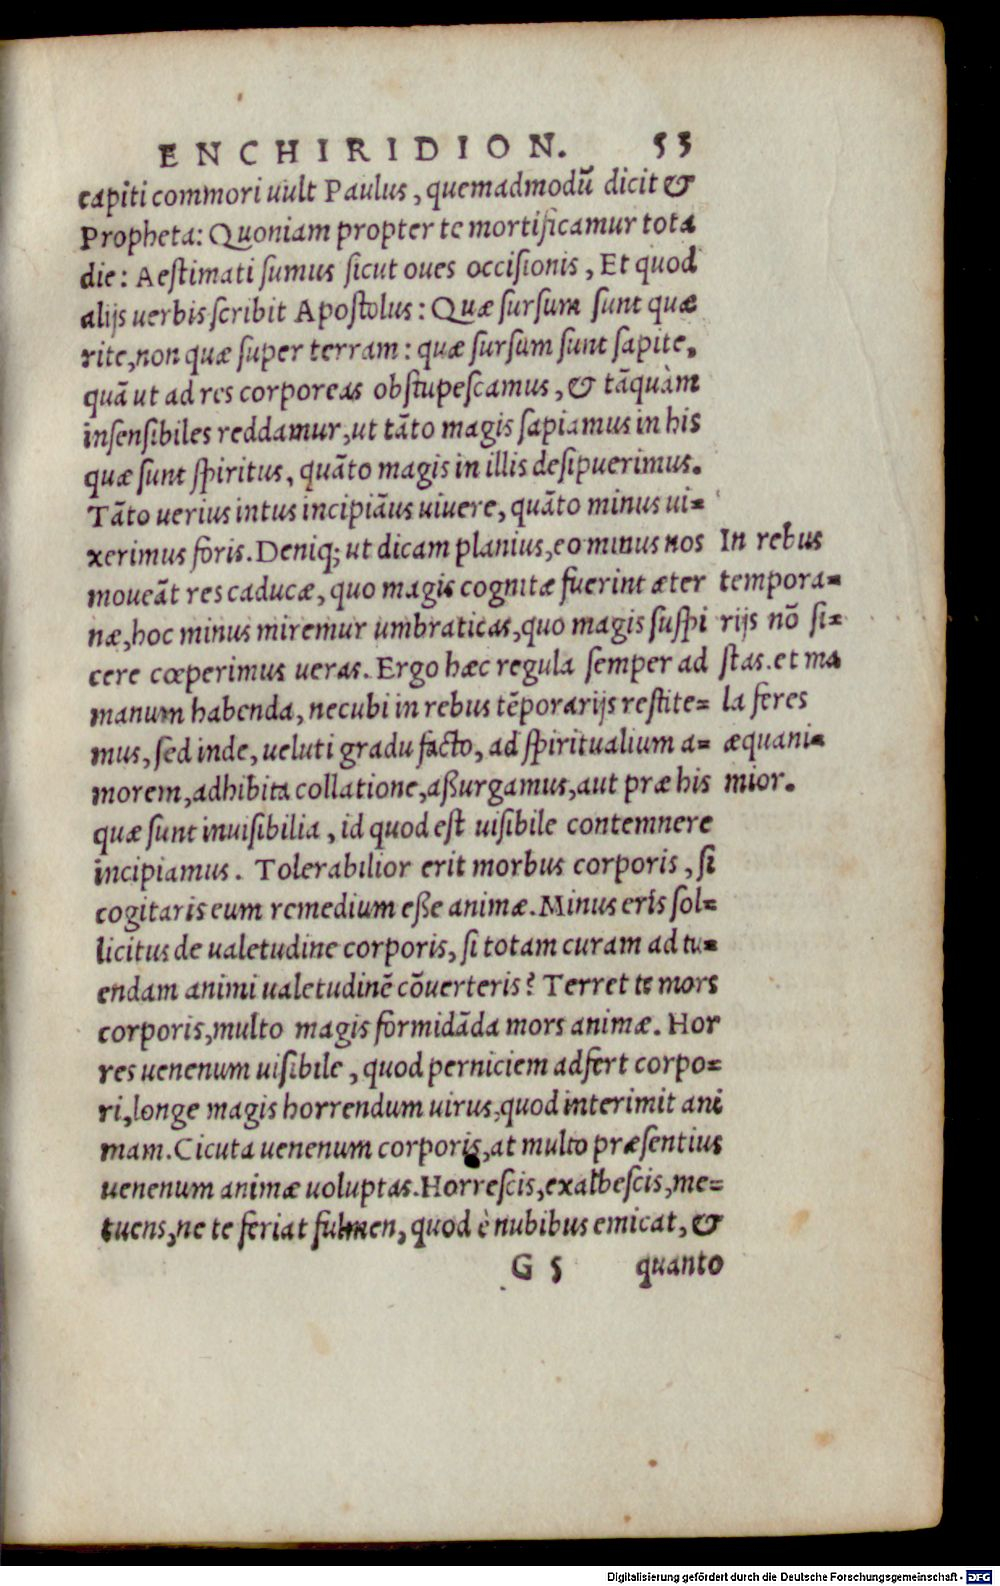 ENCHIRIDION. 53
capiti commori uult Paulus, quemadmodũ dicit &
Propheta: Quoniam propter te mortificamur tota
die: Aestimati sumus sicut oues occisionis, Et quod
alijs uerbis scribit Apostolus: Quæ sursum sunt quæ
rite, non quæ super terram: quæ sursum sunt sapite,
quã ut ad res corporeas obstupescamus, & tãquàm
insensibiles reddamur, ut tãto magis sapiamus in his
quæ sunt spiritus, quãto magis in illis desipuerimus.
Tãto uerius intus incipiãus uiuere, quãto minus ui=
xerimus foris. Deniq; ut dicam planius, eo minus nos
moueãt res caducæ, quo magis cognitæ fuerint æter
næ, hoc minus miremur umbraticas, quo magis suspi
cere cœperimus ueras. Ergo hæc regula semper ad
manum habenda, necubi in rebus tẽporarijs restite=
mus, sed inde, ueluti gradu facto, ad spiritualium a=
morem, adhibita collatione, aßurgamus, aut præ his
quæ sunt inuisibilia, id quod est uisibile contemnere
incipiamus. Tolerabilior erit morbus corporis, si
cogitaris eum remedium eße animæ. Minus eris sol=
licitus de ualetudine corporis, si totam curam ad tu=
endam animi ualetudinẽ cõuerteris? Terret te mors
corporis, multo magis formidãda mors animæ. Hor
res uenenum uisibile, quod perniciem adfert corpo=
ri, longe magis horrendum uirus, quod interimit ani
mam. Cicuta uenenum corporis, at multo præsentius
uenenum animæ uoluptas. Horrescis, exalbescis, me=
tuens, ne te feriat fulmen, quod è nubibus emicat, &
G 5 quanto
In rebus
tempora=
rijs nõ si=
stas. et ma
la feres
æquani=
mior.
Digitalisierung gefördert durch die Deutsche Forschungsgemeinschaft - DFG